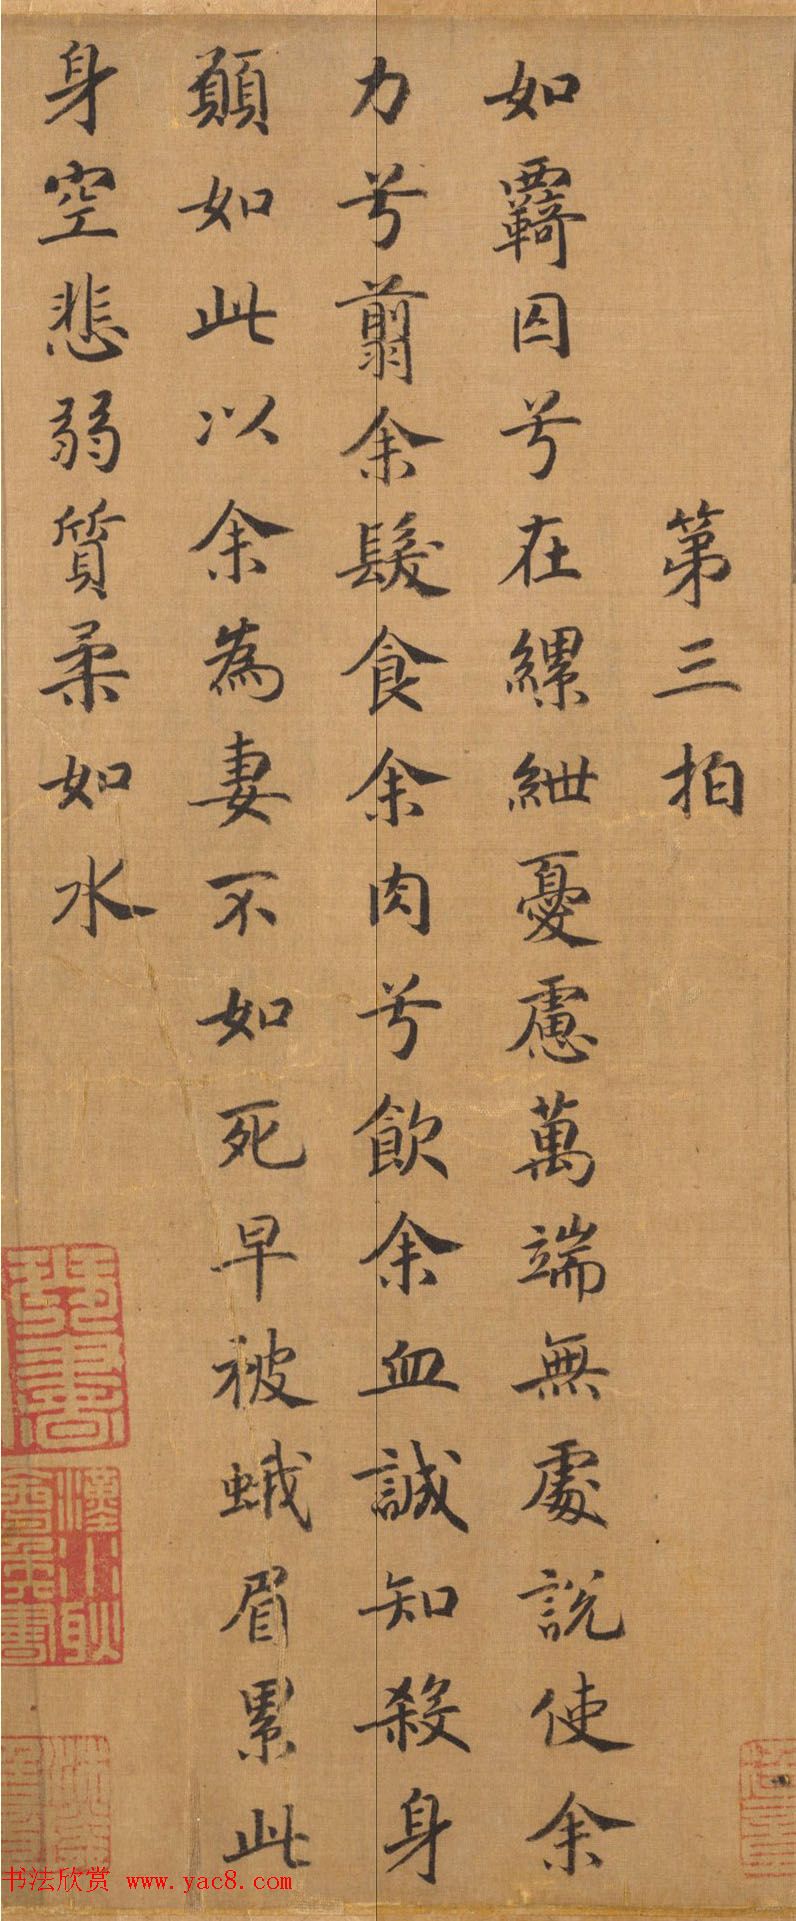 第三拍
如羇囚兮在縲絏憂慮萬端無處說使余
力兮翦余髮食余肉兮飲余血誠知殺身
願如此以余為妻不如死早被蛾眉累此
身空悲弱質柔如水
書法欣赏 www.yac8.com